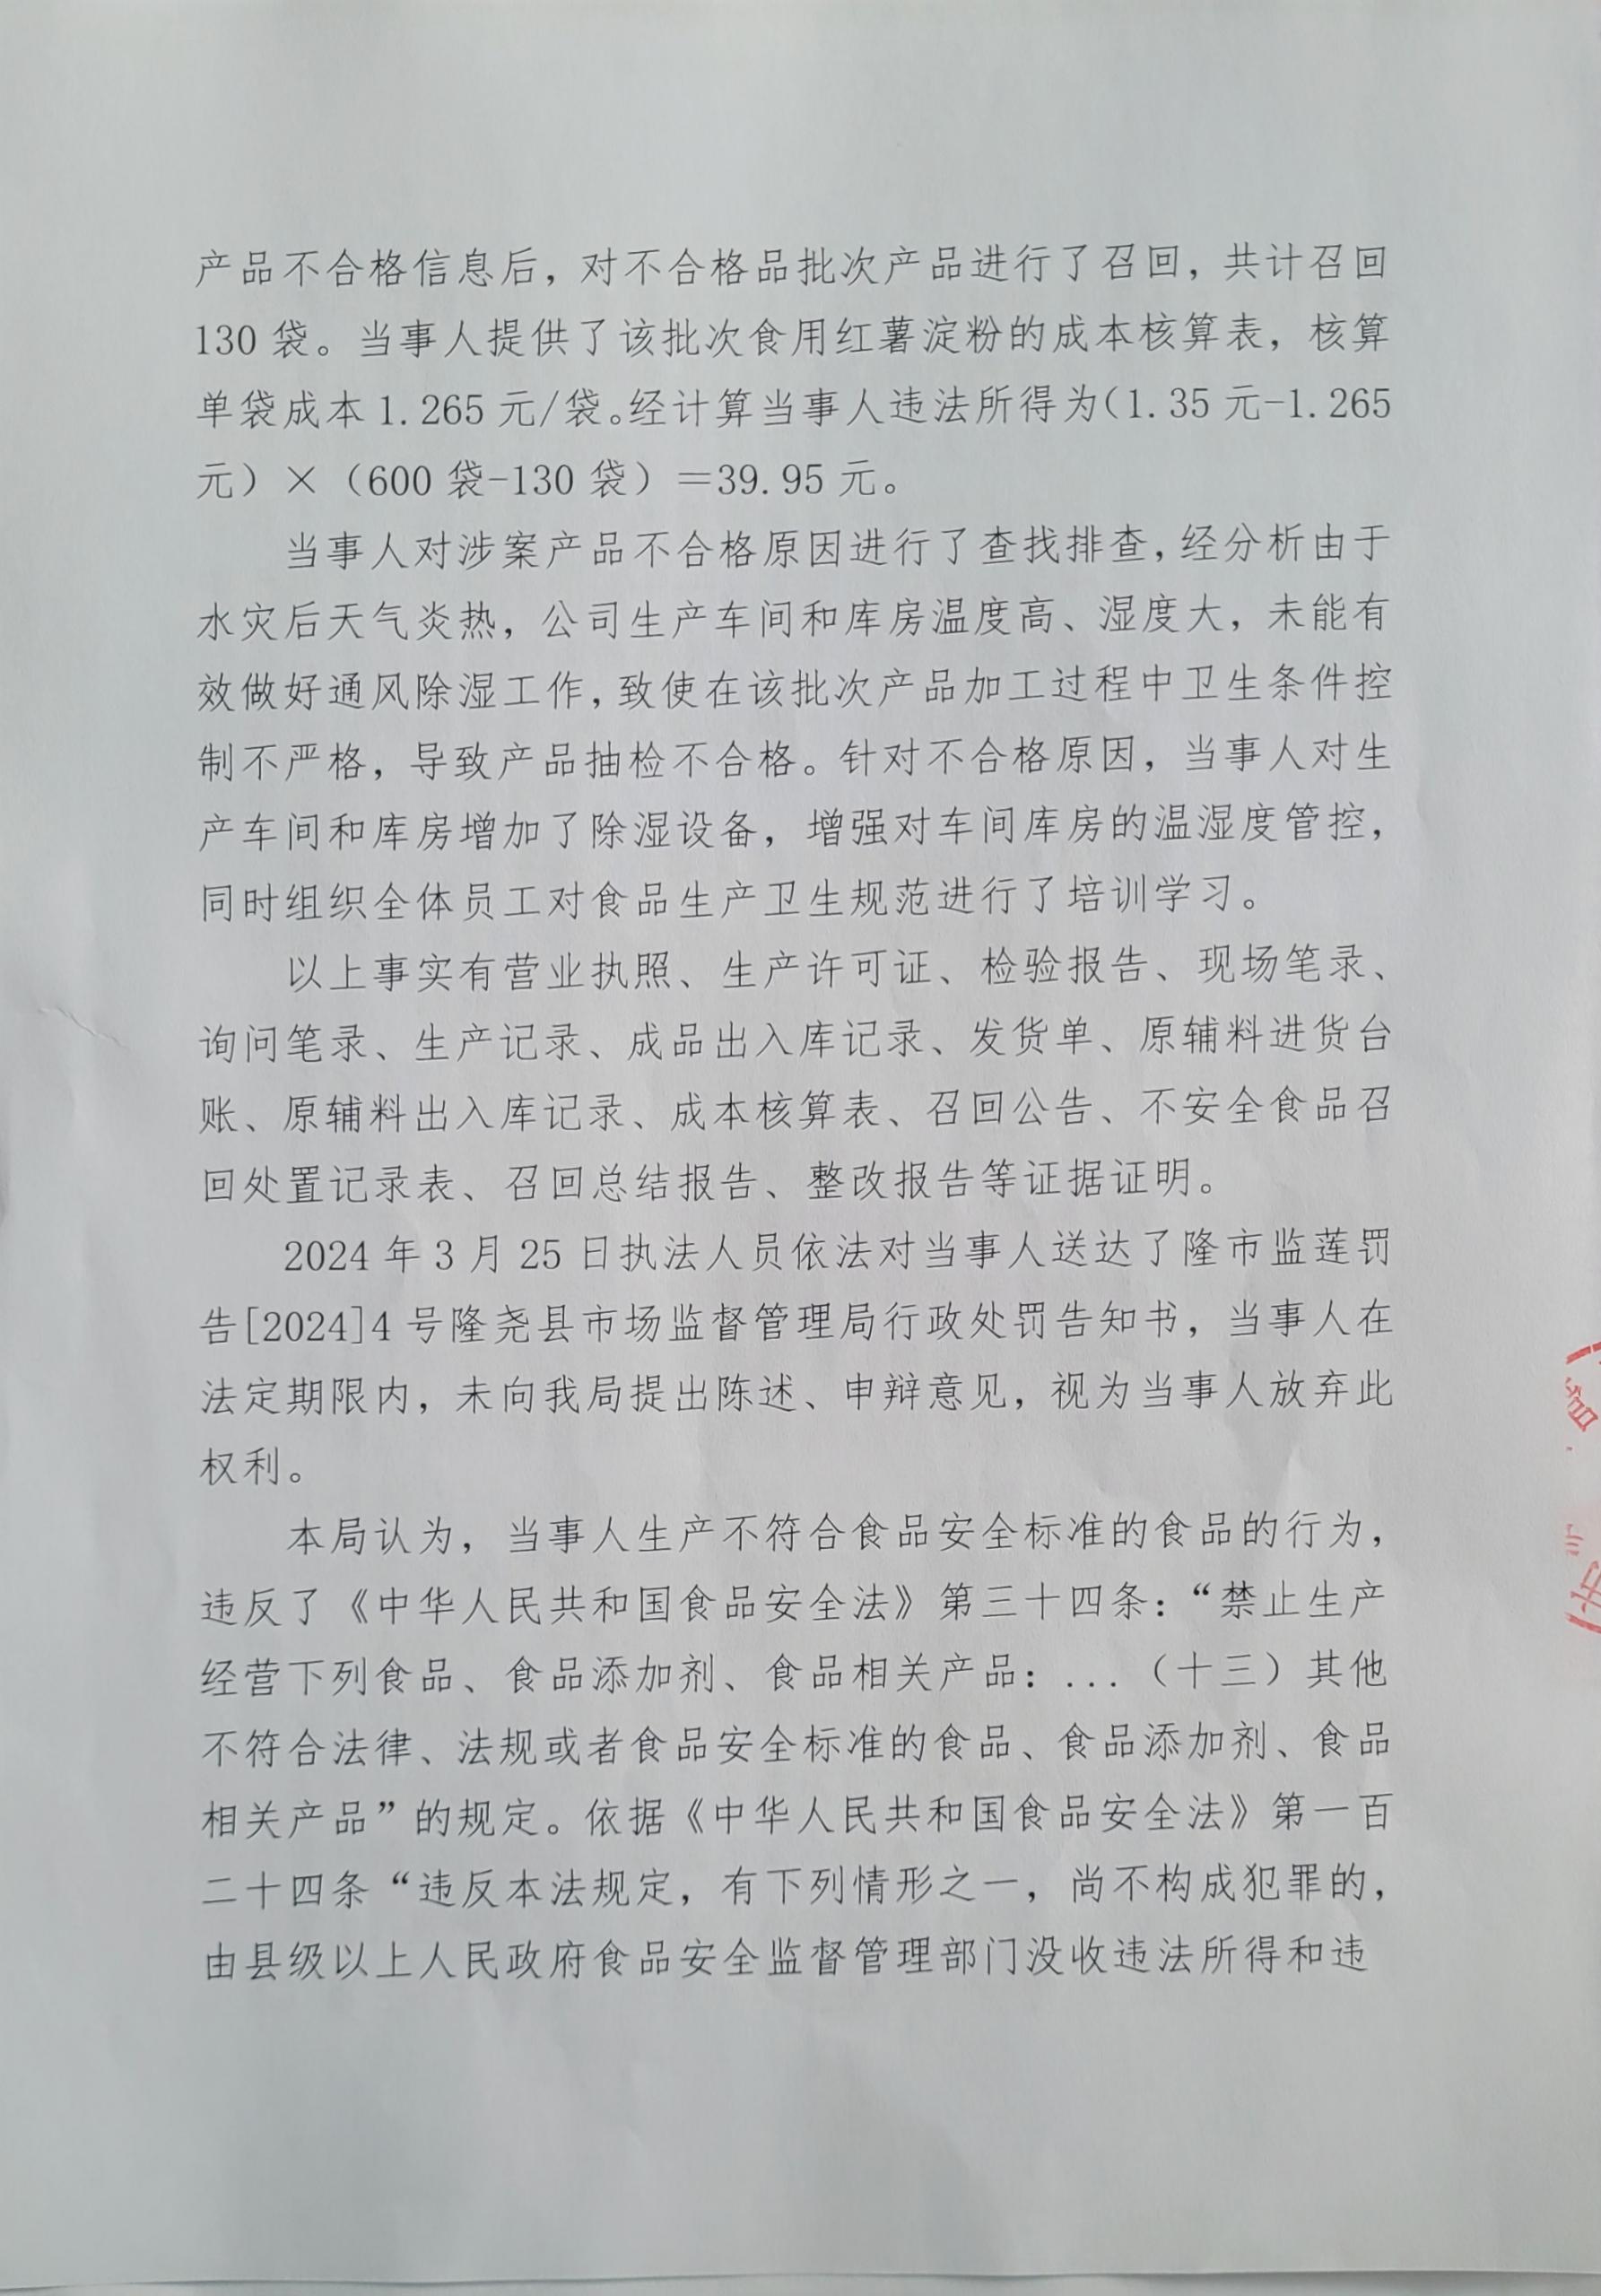 产品不合格信息后，对不合格品批次产品进行了召回，共计召回
130 袋。当事人提供了该批次食用红薯淀粉的成本核算表，核算
单袋成本 1.265 元/袋。经计算当事人违法所得为（1.35 元-1.265
元）×（600 袋-130 袋）＝39.95 元。
当事人对涉案产品不合格原因进行了查找排查，经分析由于
水灾后天气炎热，公司生产车间和库房温度高、湿度大，未能有
效做好通风除湿工作，致使在该批次产品加工过程中卫生条件控
制不严格，导致产品抽检不合格。针对不合格原因，当事人对生
产车间和库房增加了除湿设备，增强对车间库房的温湿度管控，
同时组织全体员工对食品生产卫生规范进行了培训学习。
以上事实有营业执照、生产许可证、检验报告、现场笔录、
询问笔录、生产记录、成品出入库记录、发货单、原辅料进货台
账、原辅料出入库记录、成本核算表、召回公告、不安全食品召
回处置记录表、召回总结报告、整改报告等证据证明。
2024 年 3 月 25 日执法人员依法对当事人送达了隆市监莲罚
告[2024]4 号隆尧县市场监督管理局行政处罚告知书，当事人在
法定期限内，未向我局提出陈述、申辩意见，视为当事人放弃此
权利。
本局认为，当事人生产不符合食品安全标准的食品的行为，
违反了《中华人民共和国食品安全法》第三十四条：“禁止生产
经营下列食品、食品添加剂、食品相关产品：...（十三）其他
不符合法律、法规或者食品安全标准的食品、食品添加剂、食品
相关产品”的规定。依据《中华人民共和国食品安全法》第一百
二十四条“违反本法规定，有下列情形之一，尚不构成犯罪的，
由县级以上人民政府食品安全监督管理部门没收违法所得和违